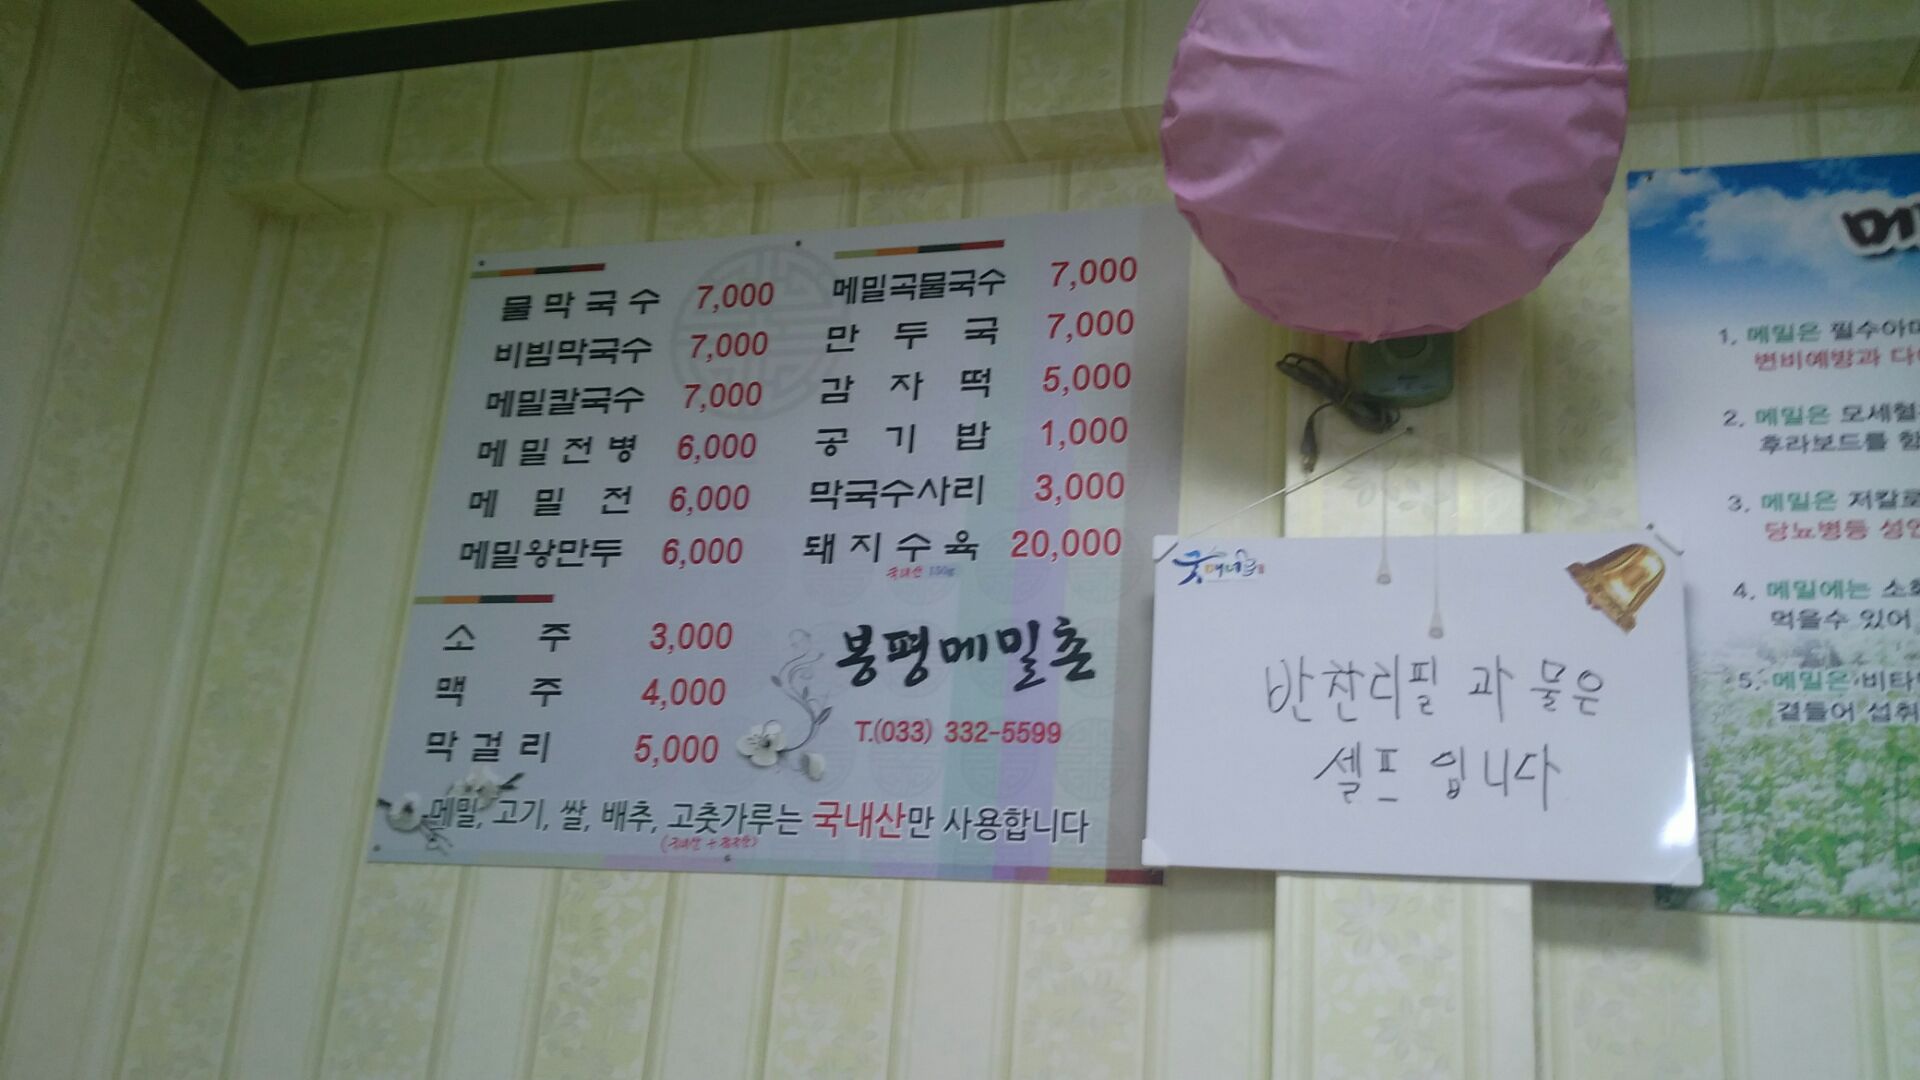 물막국수 7,000
비빔막국수 7,000
메밀칼국수 7,000
메밀전병 6,000
메밀전 6,000
메밀왕만두 6,000
메밀곡물국수 7,000
만두국 7,000
감자떡 5,000
공기밥 1,000
막국수사리 3,000
돼지수육 20,000
국내산 150g
소주 3,000
맥주 4,000
막걸리 5,000
봉평메밀촌
T.(033) 332-5599
메밀, 고기, 쌀, 배추, 고춧가루는 국내산만 사용합니다
반찬리필 과 물은
셀프 입니다
1. 메밀은
변비예방과
2. 메밀은 모세혈
후라보드를 함
3. 메밀은 저칼로
당뇨병등 성인
4. 메밀에는 소화
먹을수 있어
5. 메밀은 비타민
곁들어 섭취